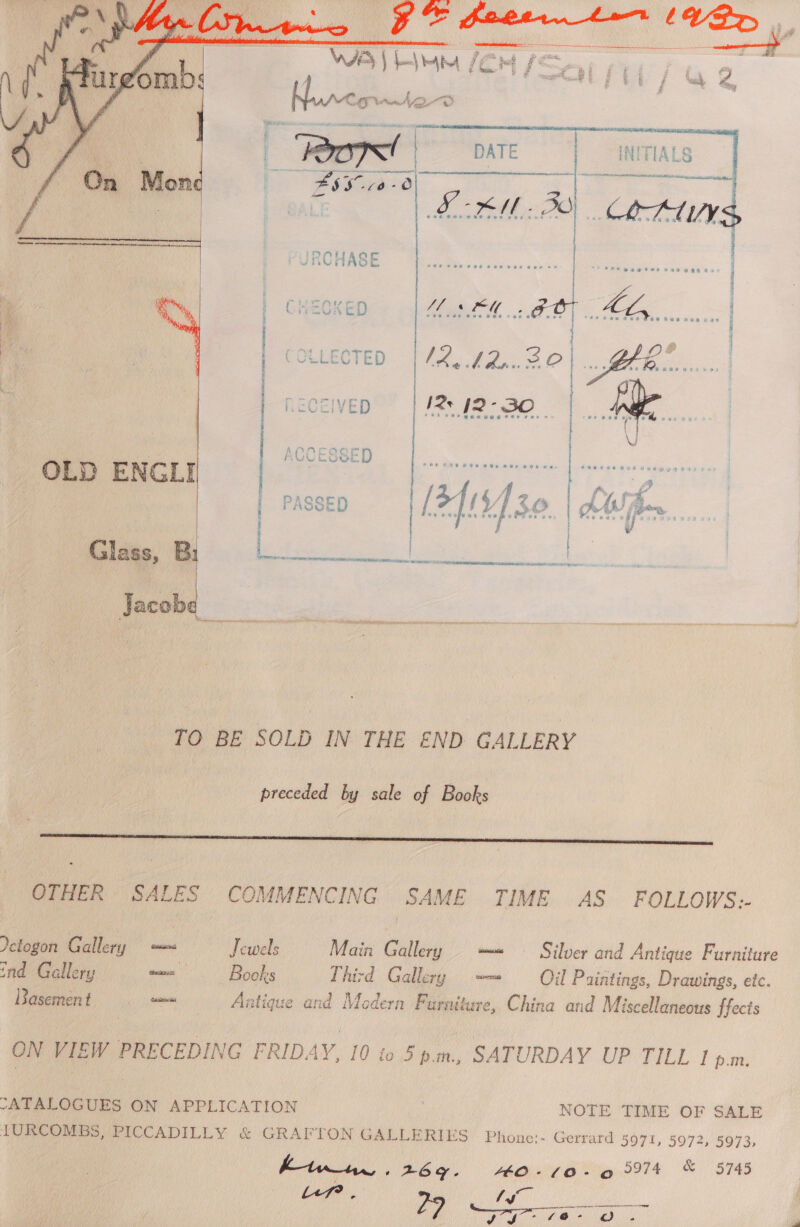 Mr Comins 8th December 1930
Hurcombs
WA/HMM/CM/Sal/11/42
Hurcombs
BON DATE INITIALS
£55-10-0
SALE 8-XII-30 COMINS
PURCHASE
CHECKED 11 XII 30
COLLECTED 12.12.30
RECEIVED 12.12-30
ACCESSED
PASSED 30
On Mond
OLD ENGLI
Glass, B
Jacobe
TO BE SOLD IN THE END GALLERY
preceded by sale of Books
OTHER SALES COMMENCING SAME TIME AS FOLLOWS:-
Octogon Gallery — Jewels Main Gallery — Silver and Antique Furniture
End Gallery — Books Third Gallery — Oil Paintings, Drawings, etc.
Basement — Antique and Modern Furniture, China and Miscellaneous ffects
ON VIEW PRECEDING FRIDAY, 10 to 5 p.m., SATURDAY UP TILL 1 p.m.
CATALOGUES ON APPLICATION NOTE TIME OF SALE
HURCOMBS, PICCADILLY & GRAFTON GALLERIES Phone:- Gerrard 5971, 5972, 5973,
5974 & 5745
269. 40-10-0
79 15
55-10-0.